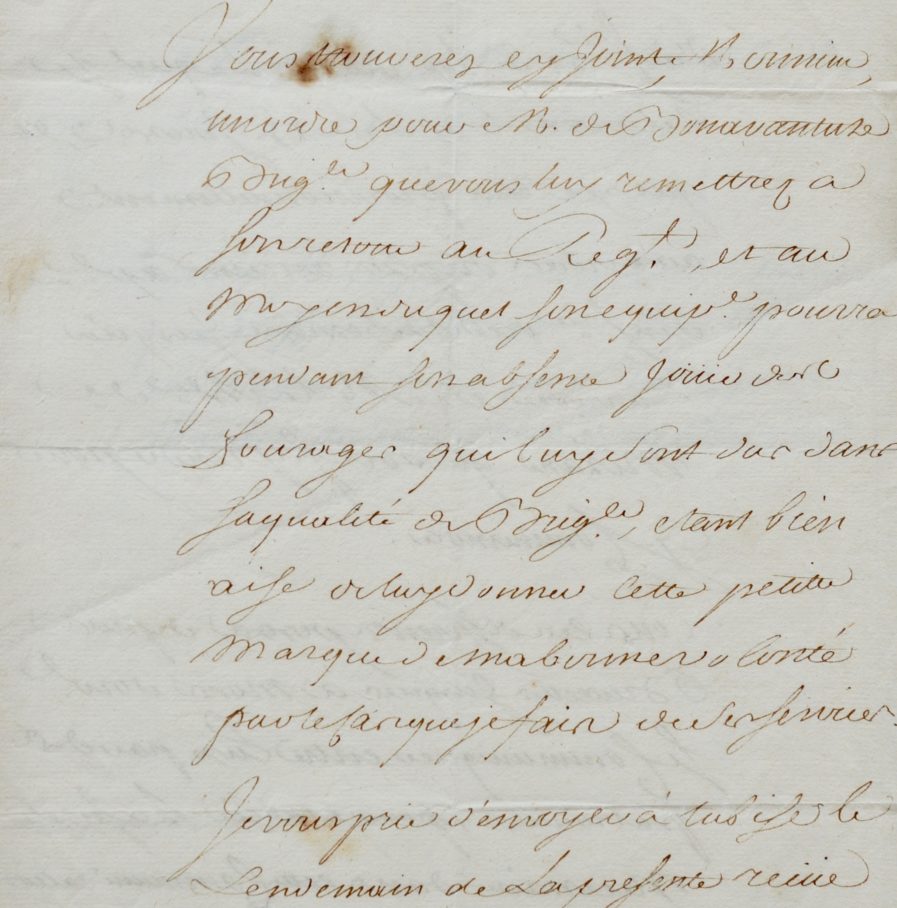 Vous trouverez cy joint, Monsieur,
un ordre pour M. de Bonavanture
Brig.er que vous luy remettrez a
son retour au Reg.t, et au
moyen duquel son equip.e pourra
pendant son absence jouir des
fourages qui luy sont dus dans
sa qualité de Brig.er, etant bien
aise de luy donner cette petite
marque de ma bonne volonté
par le cas que je fais de ses services.
Je vous prie d'envoyer à le
Lendemain de La presente reçüe